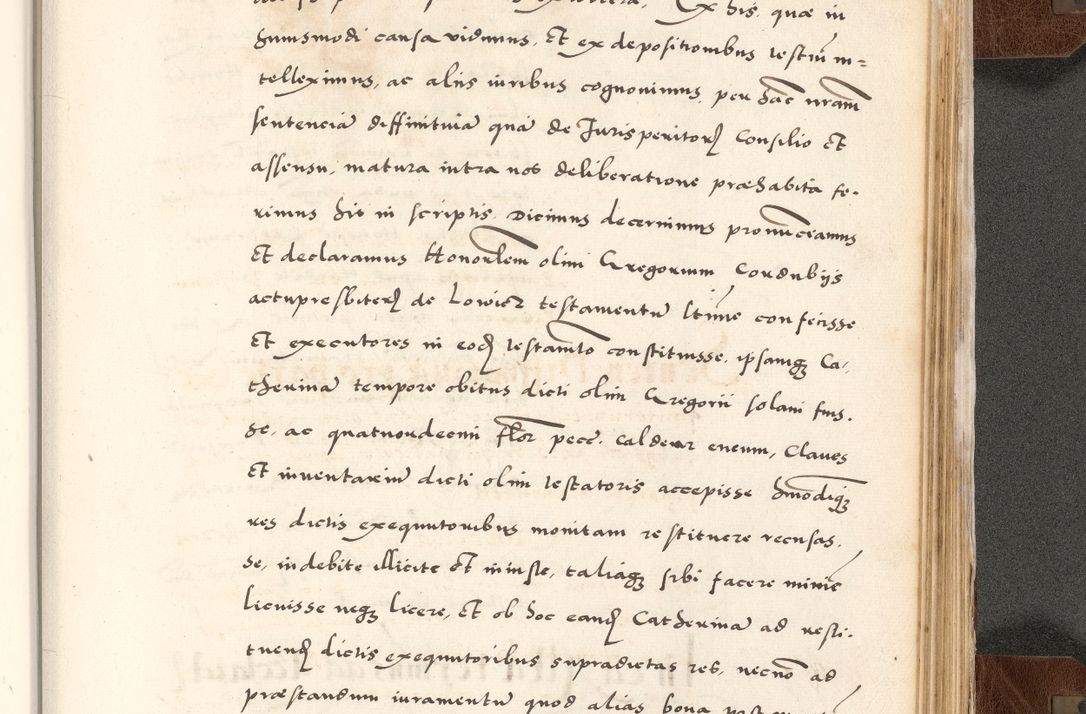 Ex his, quæ in
huiusmodi causa vidimus, et ex depositionibus testiū in=
telleximus, ac aliis iuribus cognouimus, per hāc nrām
sentenciā diffinitiuā quā de Jurisperitorꝝ Consilio et
assensu, matura intra nos deliberatione præhabita fe.
rimus his in scriptis, Dicimus decernimus pronūceamus
et declaramus Honorlem olim Gregorium Cordubijs
actupresbiterꝝ de Lowicz testamentū ltīme confecisse
et executores in eodꝫ testamto constituisse, ipsamqꝫ Ca,
therinā tempore obitus dicti olim Gregorii solam fuis.
se, ac quatuordecim flor pecc. caldear eneum, Claues
et inuentariū dicti olim testatoris accepisse hmōdiqꝫ
res dictis exequutoribus monitam restituere recusas.
se, indebite illicite et iniuste, taliaqꝫ sibi facere minīe
licuisse neqꝫ licere, et ob hoc eandꝫ Catherinā ad resti.
tuendꝫ dictis exequutoribus supradictas res, necnō ad
præstandum iuramentū quod alias bona